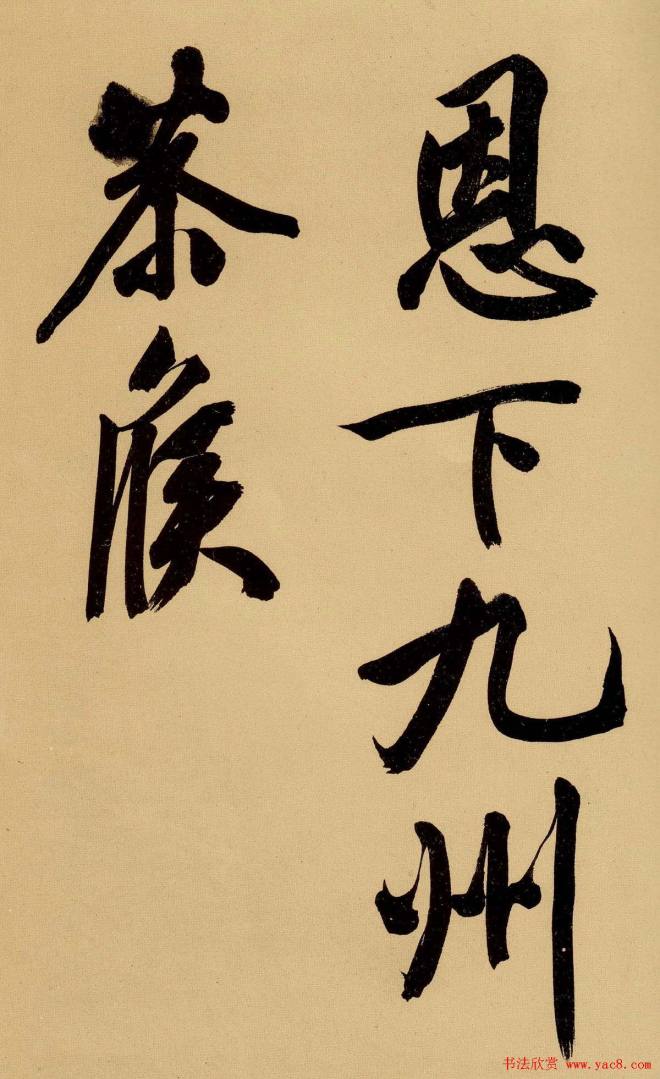 恩下九州
茶候
书法欣赏 www.yac8.com